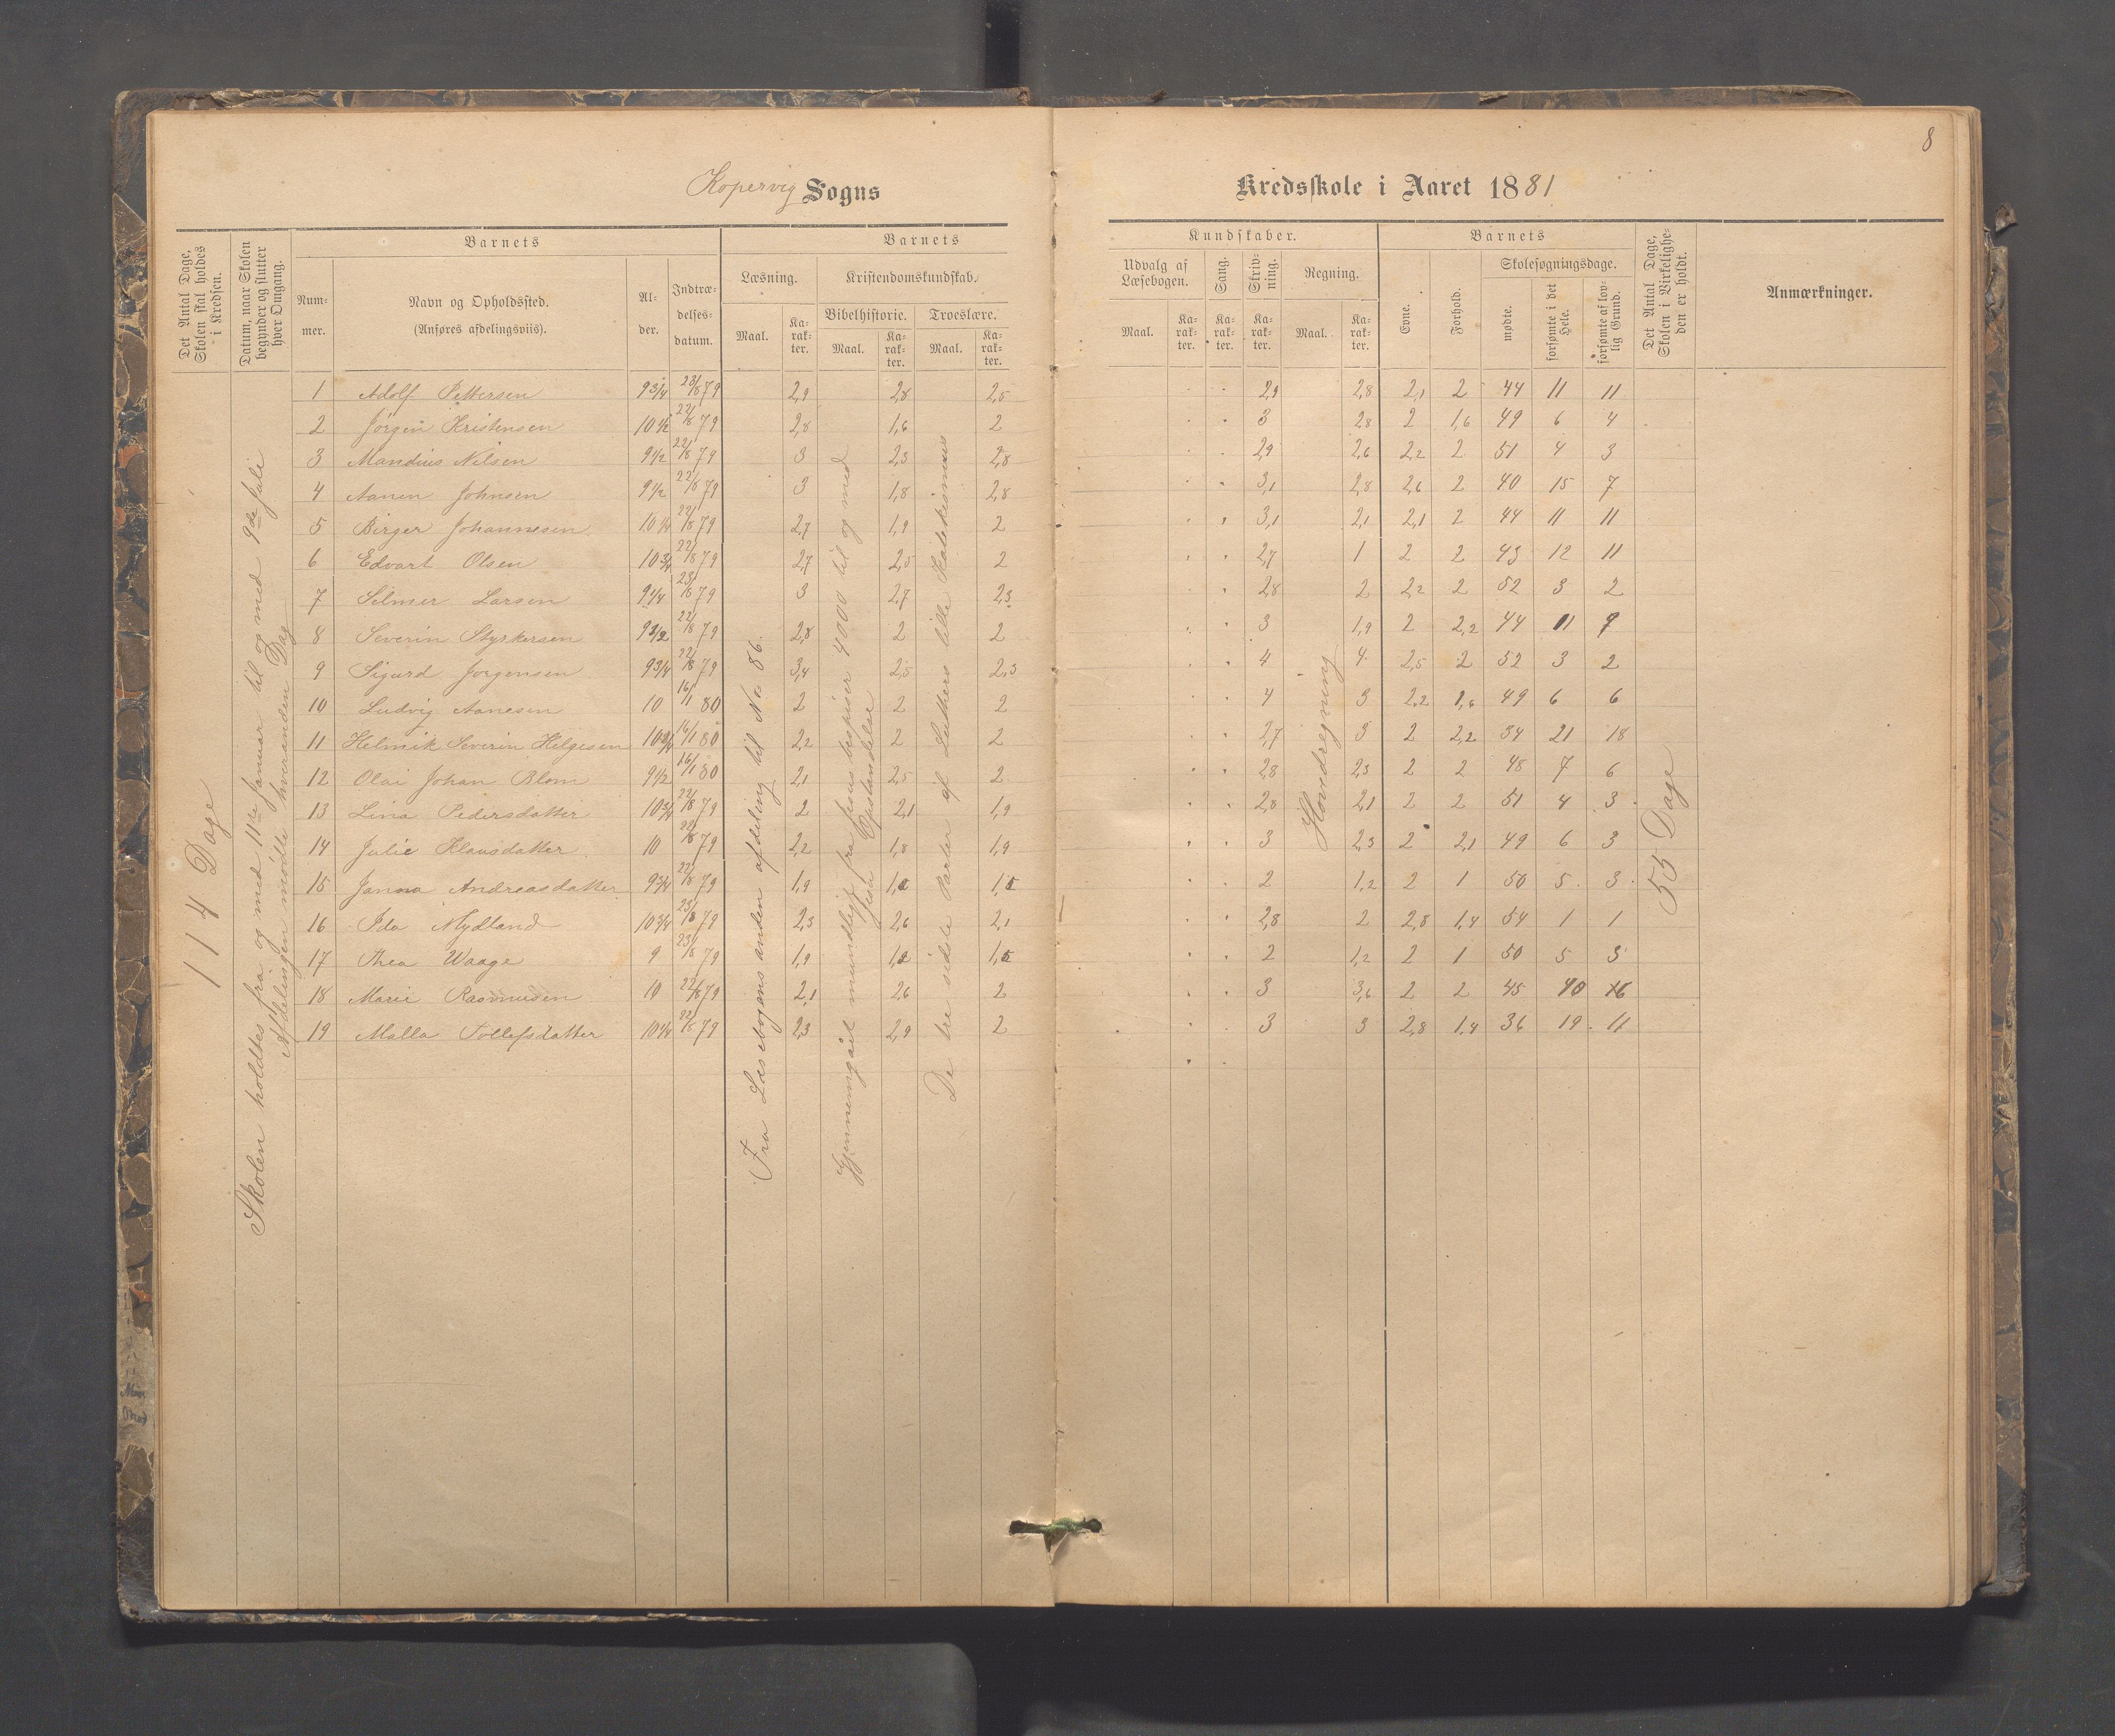 8
Kopervig Sogns
Kredsskole i Aaret 1881
Det Antal Dage, Skolen skal holdes i Kredsen.
Datum, naar Skolen begynder og slutter hver Omgang.
Barnets
Nummer.
Navn og Opholdssted.
(Anføres afdelingsviis).
Alder.
Indtrædelsesdatum.
Barnets
Læsning.
Maal.
Karakter.
Kristendomskundskab.
Bibelhistorie.
Maal.
Karakter.
Troeslære.
Maal.
Karakter.
Kundskaber.
Udvalg af Læsebogen.
Maal.
Karakter.
Sang.
Karakter.
Skrivning.
Karakter.
Regning.
Maal.
Karakter.
Barnets
Evne.
Forhold.
Skolesøgningsdage.
mødte.
forsømte i det Hele.
forsømte af lovlig Grund.
Det Antal Dage, Skolen i Virkeligheden er holdt.
Anmærkninger.
114 Dage
Skolen holdtes fra og med 11te Januar til og med 9de Juli
Afdelingen mødte hveranden Dag
Fra Læsebogens anden afdeling til No 86.
Gjennemgaaet mundligt fra Jesus bespiser 4000 til og med
Jesu Opstandelse
De tre sidste Parter af Luthers lille Katekismus
Hovedregning
55 Dage
1 Adolf Pettersen 9 3/4 23/8 79 2,9 2,8 2,5 2,9 2,8 2,1 2 44 11 11
2 Jörgen Kristensen 10 1/2 22/8 79 2,8 1,6 2 3 2,8 2 1,6 49 6 4
3 Mandius Nilsen 9 1/2 22/8 79 3 2,3 2,8 2,9 2,6 2,2 2 51 4 3
4 Aanen Johnsen 9 1/2 22/8 79 3 1,8 2,8 3,1 2,8 2,6 2 40 15 7
5 Birger Johannesen 10 1/4 22/8 79 2,7 1,9 2 3,1 2,1 2,1 2 44 11 11
6 Edvart Olsen 10 3/4 22/8 79 2,7 2,5 2 2,7 1 2 2 43 12 11
7 Selmer Larsen 9 1/4 23/8 79 3 2,7 2,3 2,8 2 2,2 2 52 3 2
8 Severin Styrkersen 9 1/2 22/8 79 2,8 2 2 3 1,9 2 2,2 44 11 9
9 Sigurd Jorgensen 9 3/4 22/8 79 3,4 2,5 2,3 4 4 2,5 2 52 3 2
10 Ludvig Aanesen 10 16/1 80 2 2 2 4 3 2,2 1,6 49 6 6
11 Helmik Severin Helgesen 10 3/4 16/1 80 2,2 2 2 2,7 3 2 2,2 34 21 18
12 Olai Johan Blom 9 1/2 16/1 80 2,1 2,5 2 2,8 2,3 2 2 48 7 6
13 Lina Pedersdatter 10 3/4 22/8 79 2 2,1 1,9 2,8 2,1 2 2 51 4 3
14 Julie Klausdatter 10 22/8 79 2,2 1,8 1,9 3 2,3 2 2,1 49 6 3
15 Janna Andreasdatter 9 3/4 22/8 79 1,9 1,2 1,5 2 1,2 2 1 50 5 3
16 Ida Mydland 10 3/4 23/8 79 2,3 2,6 2,1 2,8 2 2,8 1,4 54 1 1
17 Thea Waage 9 23/8 79 1,9 1,2 1,5 2 1,2 2 1 50 5 3
18 Marie Rasmusen 10 22/8 79 2,1 2,6 2 3 3,6 2 2 45 10 6
19 Malla Tollefsdatter 10 1/4 22/8 79 2,3 2,9 2 3 3 2,8 1,4 36 19 11